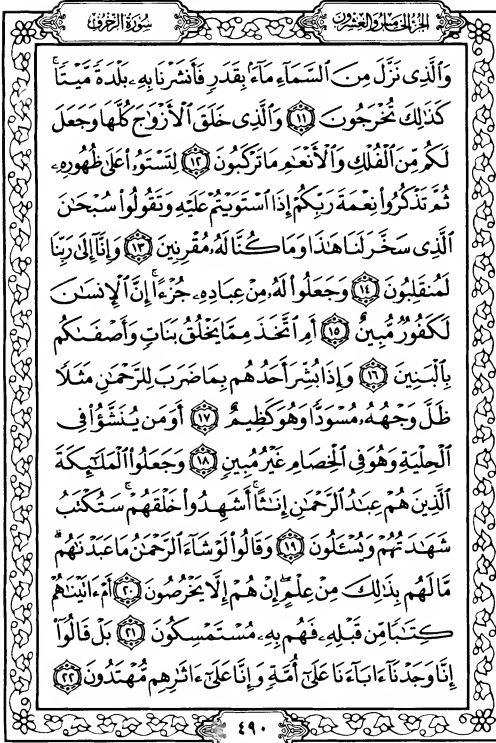 سُورَةُ الزُّخْرُفِ
الجُزْءُ الخَامِسُ وَالعِشْرُونَ
وَٱلَّذِى نَزَّلَ مِنَ ٱلسَّمَآءِ مَآءَۢ بِقَدَرٍ فَأَنشَرْنَا بِهِۦ بَلْدَةً مَّيْتًا ۚ
كَذَٰلِكَ تُخْرَجُونَ ١١ وَٱلَّذِى خَلَقَ ٱلْأَزْوَٰجَ كُلَّهَا وَجَعَلَ
لَكُم مِّنَ ٱلْفُلْكِ وَٱلْأَنْعَٰمِ مَا تَرْكَبُونَ ١٢ لِتَسْتَوُۥا۟ عَلَىٰ ظُهُورِهِۦ
ثُمَّ تَذْكُرُوا۟ نِعْمَةَ رَبِّكُمْ إِذَا ٱسْتَوَيْتُمْ عَلَيْهِ وَتَقُولُوا۟ سُبْحَٰنَ
ٱلَّذِى سَخَّرَ لَنَا هَٰذَا وَمَا كُنَّا لَهُۥ مُقْرِنِينَ ١٣ وَإِنَّآ إِلَىٰ رَبِّنَا
لَمُنقَلِبُونَ ١٤ وَجَعَلُوا۟ لَهُۥ مِنْ عِبَادِهِۦ جُزْءًا ۚ إِنَّ ٱلْإِنسَٰنَ
لَكَفُورٌ مُّبِينٌ ١٥ أَمِ ٱتَّخَذَ مِمَّا يَخْلُقُ بَنَاتٍ وَأَصْفَىٰكُم
بِٱلْبَنِينَ ١٦ وَإِذَا بُشِّرَ أَحَدُهُم بِمَا ضَرَبَ لِلرَّحْمَٰنِ مَثَلًا
ظَلَّ وَجْهُهُۥ مُسْوَدًّا وَهُوَ كَظِيمٌ ١٧ أَوَمَن يُنَشَّؤُا۟ فِى
ٱلْحِلْيَةِ وَهُوَ فِى ٱلْخِصَامِ غَيْرُ مُبِينٍ ١٨ وَجَعَلُوا۟ ٱلْمَلَٰٓئِكَةَ
ٱلَّذِينَ هُمْ عِبَٰدُ ٱلرَّحْمَٰنِ إِنَٰثًا ۚ أَشَهِدُوا۟ خَلْقَهُمْ ۚ سَتُكْتَبُ
شَهَٰدَتُهُمْ وَيُسْـَٔلُونَ ١٩ وَقَالُوا۟ لَوْ شَآءَ ٱلرَّحْمَٰنُ مَا عَبَدْنَٰهُم ۗ
مَّا لَهُم بِذَٰلِكَ مِنْ عِلْمٍ ۖ إِنْ هُمْ إِلَّا يَخْرُصُونَ ٢٠ أَمْ ءَاتَيْنَٰهُمْ
كِتَٰبًا مِّن قَبْلِهِۦ فَهُم بِهِۦ مُسْتَمْسِكُونَ ٢١ بَلْ قَالُوٓا۟
إِنَّا وَجَدْنَآ ءَابَآءَنَا عَلَىٰٓ أُمَّةٍ وَإِنَّا عَلَىٰٓ ءَاثَٰرِهِم مُّهْتَدُونَ ٢٢
٤٩٠